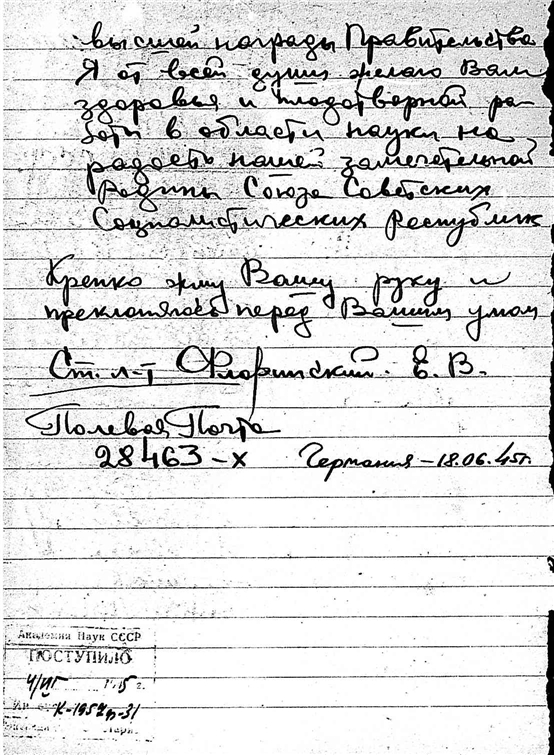 высшей награды Правительства
Я от всей души желаю Вам
здоровья и плодотворной ра-
боты в области науки на
радость нашей замечательной
Родины Союза Советских
Социалистических Республик
Крепко жму Вашу руку и
преклоняюсь перед Вашим умом
Ст. л-т Флоринский. Е. В.
Полевая Почта
28463-х Германия – 18.06.45г.
Академия Наук СССР
ПОСТУПИЛО